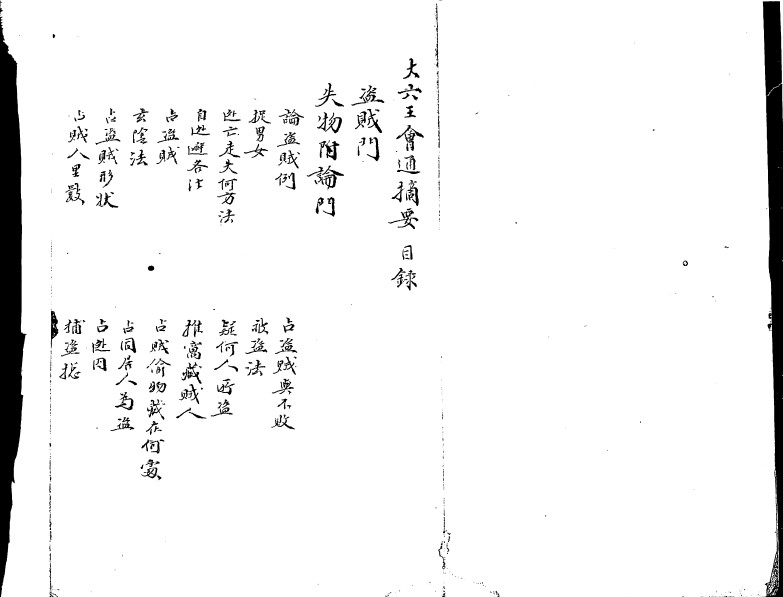 大六壬會通摘要 目録
盗賊門
失物附論門
論盗賊例
占盗賊與不敗
捉男女
被盗法
逃亡走失何方法
疑何人所盗
自逃避各法
推窩藏賊人
占盗賊
占賊偷物藏在何處
玄陰法
占同居人為盗
占盗賊形状
占逃囚
占賊人里數
捕盗